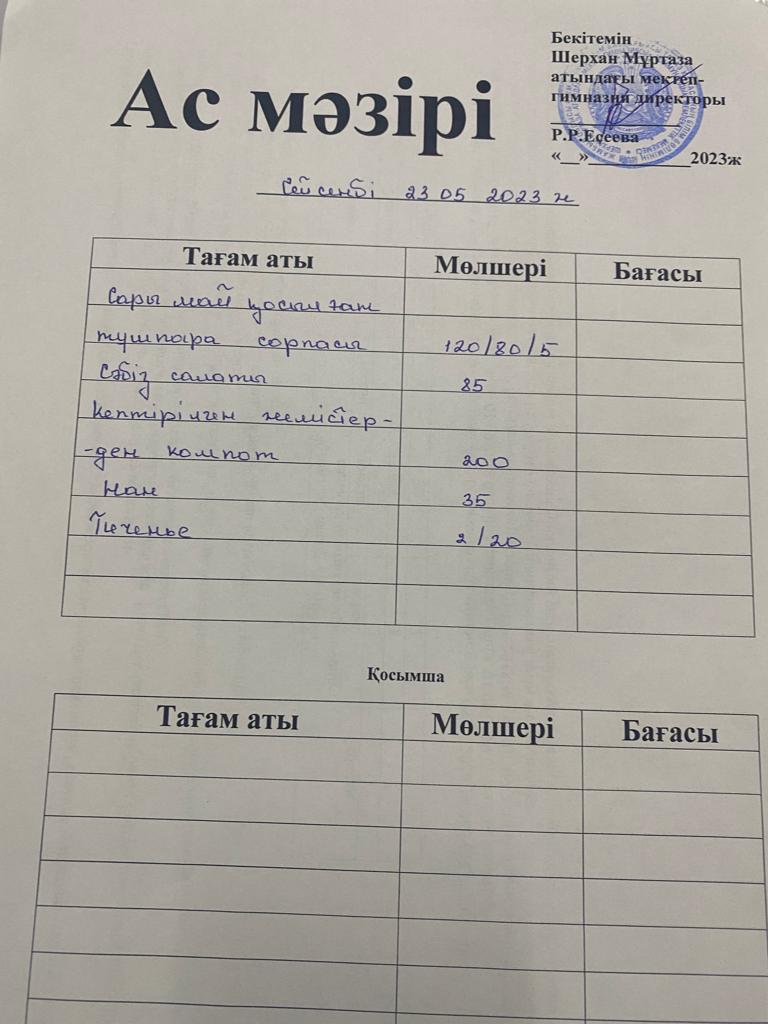 Бекітемін
Шерхан Мұртаза
атындағы мектеп-
гимназия директоры
Р.Р.Есеева
«__»____________2023ж
Ас мәзірі
Сейсенбі 23 05 2023 ж
Тағам аты Мөлшері Бағасы
Сары май қосылған
тушпара сорпасы 120/80/5
Сәбіз салаты 85
Кептірілген жемістер-
-ден компот 200
Нан 35
Печенье 2/20
Қосымша
Тағам аты Мөлшері Бағасы